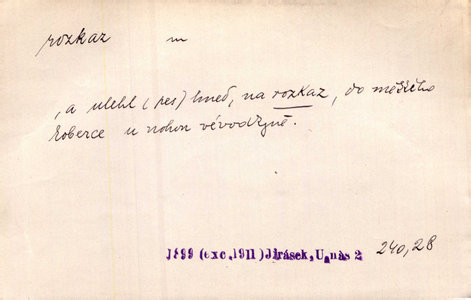 rozkaz m
„a ulehl (pes) hned, na rozkaz, do měkkého
koberce u nohou vévodkyně.
1899 (exc. 1911) Jirásek, U nás 2 240,28